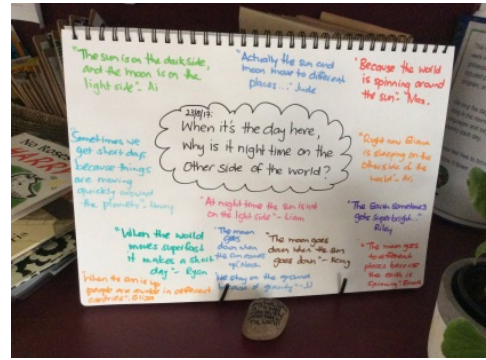 "The sun is on the dark side,
and the moon is on the
light side" - Ai
"Actually the sun and
moon move to different
places..." Jude
"Because the world
is spinning around
the sun" - Max.
23/8/17:
When it's the day here,
Why is it night time on the
Other side of the world?
"Sometimes we
get short days
because things
are moving
quickly around
the planets" -
"Right now
is sleeping on the
other side of the
world" - Ari
"At night time the sun is not
on the light side" - Liam
"The Earth sometimes
gets superbright..."
Riley
"When the world
moves superfast
it makes a short
day" - Ryan
"The moon
goes
down when
the sun comes
up"
"The moon goes
down when the sun
goes down" -
"The moon goes
to different
places because
the earth is
spinning"
"When the sun is up
people are awake in different
countries" -
"We stay on the ground
because of gravity" - JJ
NO